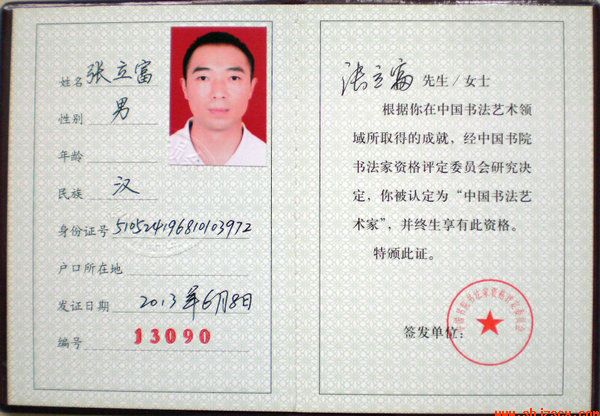 姓名 张立富
性别 男
年龄
民族 汉
身份证号 510524196810103972
户口所在地
发证日期 2013年6月8日
编号 13090
张立富 先生/女士
根据你在中国书法艺术领
域所取得的成就，经中国书院
书法家资格评定委员会研究决
定，你被认定为“中国书法艺
术家”，并终生享有此资格。
特颁此证。
签发单位：
中国书院书法家资格评定委员会